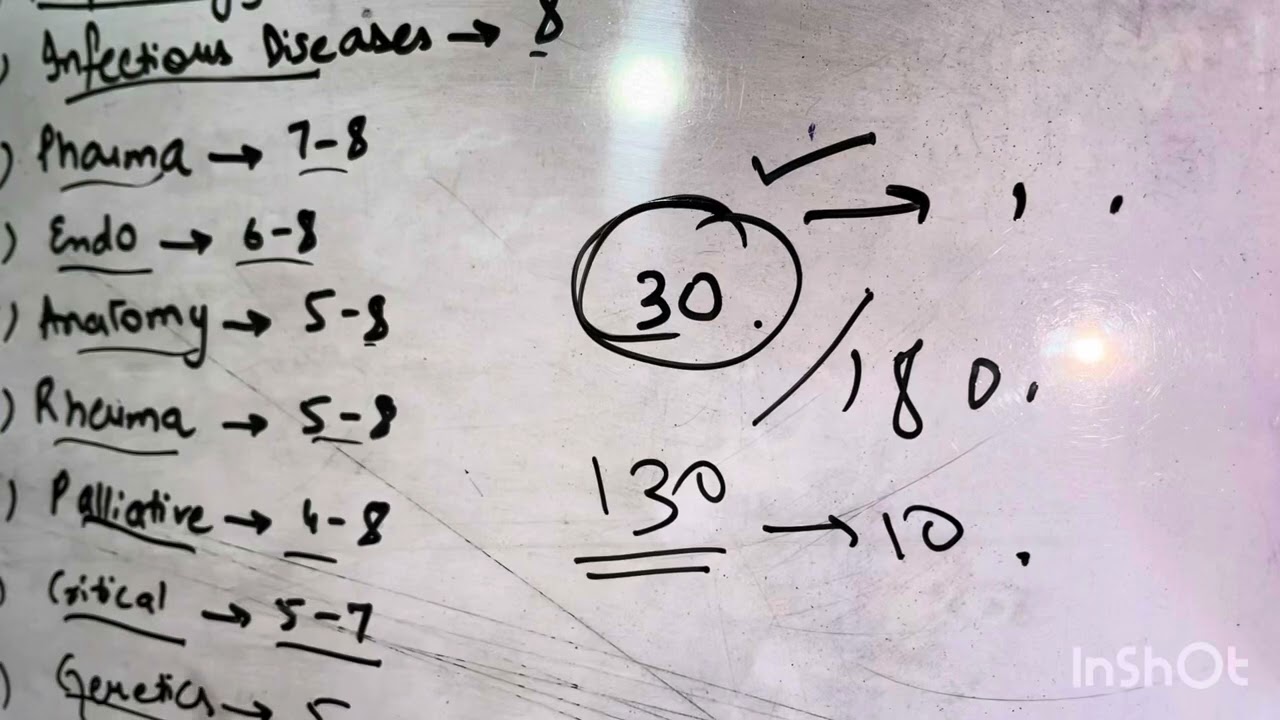 ) Infectious Diseases → 8
) Pharma → 7-8
) Endo → 6-8
) Anatomy → 5-8
) Rheuma → 5-8
) Palliative → 4-8
) Critical → 5-7
) Genetics → 5
30.
180.
130 → 10.
InShOt